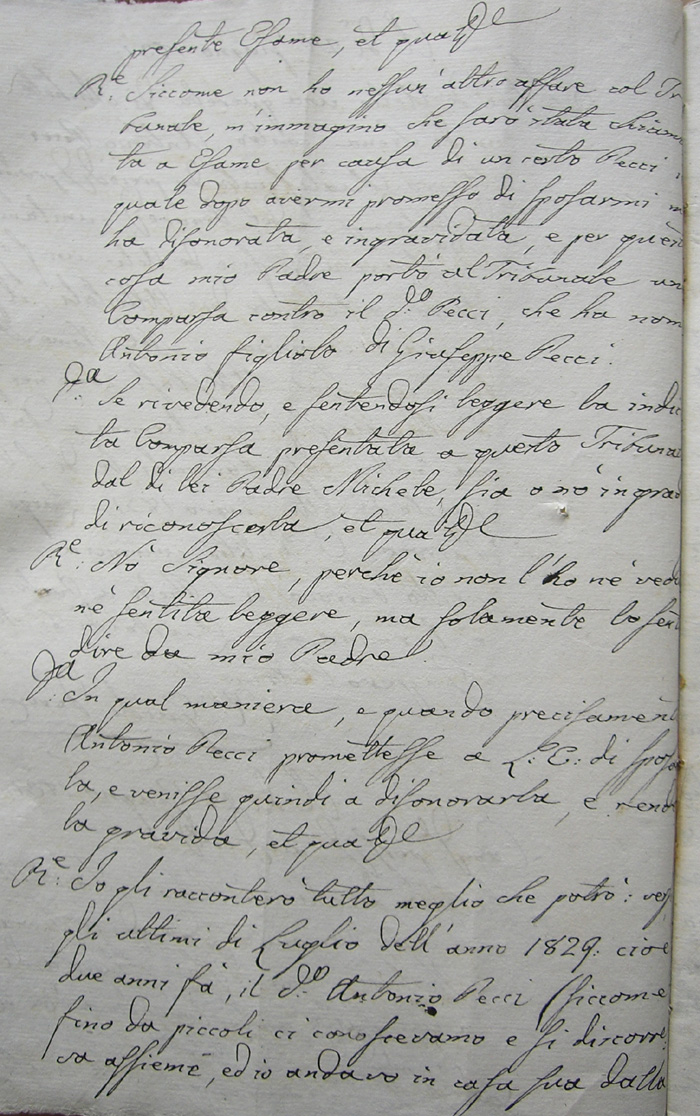 presente Esame, et qua
Re: Siccome non ho nessun' altro affare col Tri
bunale, m'immagino che sarò stata chiama
ta a Esame per causa di un certo Pecci i
quale dopo avermi promesso di sposarmi m
ha disonorata, e ingravidata, e per quest
cosa mio Padre portò al Tribunale un
Comparsa contro il do Pecci, che ha nom
Antonio figliolo di Giuseppe Pecci.
Da: Se rivedendo, e sentendosi leggere la indi
ta Comparsa presentata a questo Tribuna
dal di lei Padre Michele, sia o nò in grad
di riconoscerla, et qua
Re: Nò Signore, perchè io non l'ho nè vedu
nè sentita leggere, ma solamente lo sent
dire da mio Padre
Da: In qual maniera, e quando precisament
Antonio Pecci promettesse a L: E: di sposar
la, e venisse quindi a disonorarla, e rend
la gravida, et qua
Re: Io gli racconterò tutto meglio che potrò: ves
gli ultimi di Luglio dell' anno 1829: cioè
due anni fà, il do Antonio Pecci (siccome
fino da piccoli ci conoscevamo e si discorre
va assieme, ed io andavo in casa sua dalla